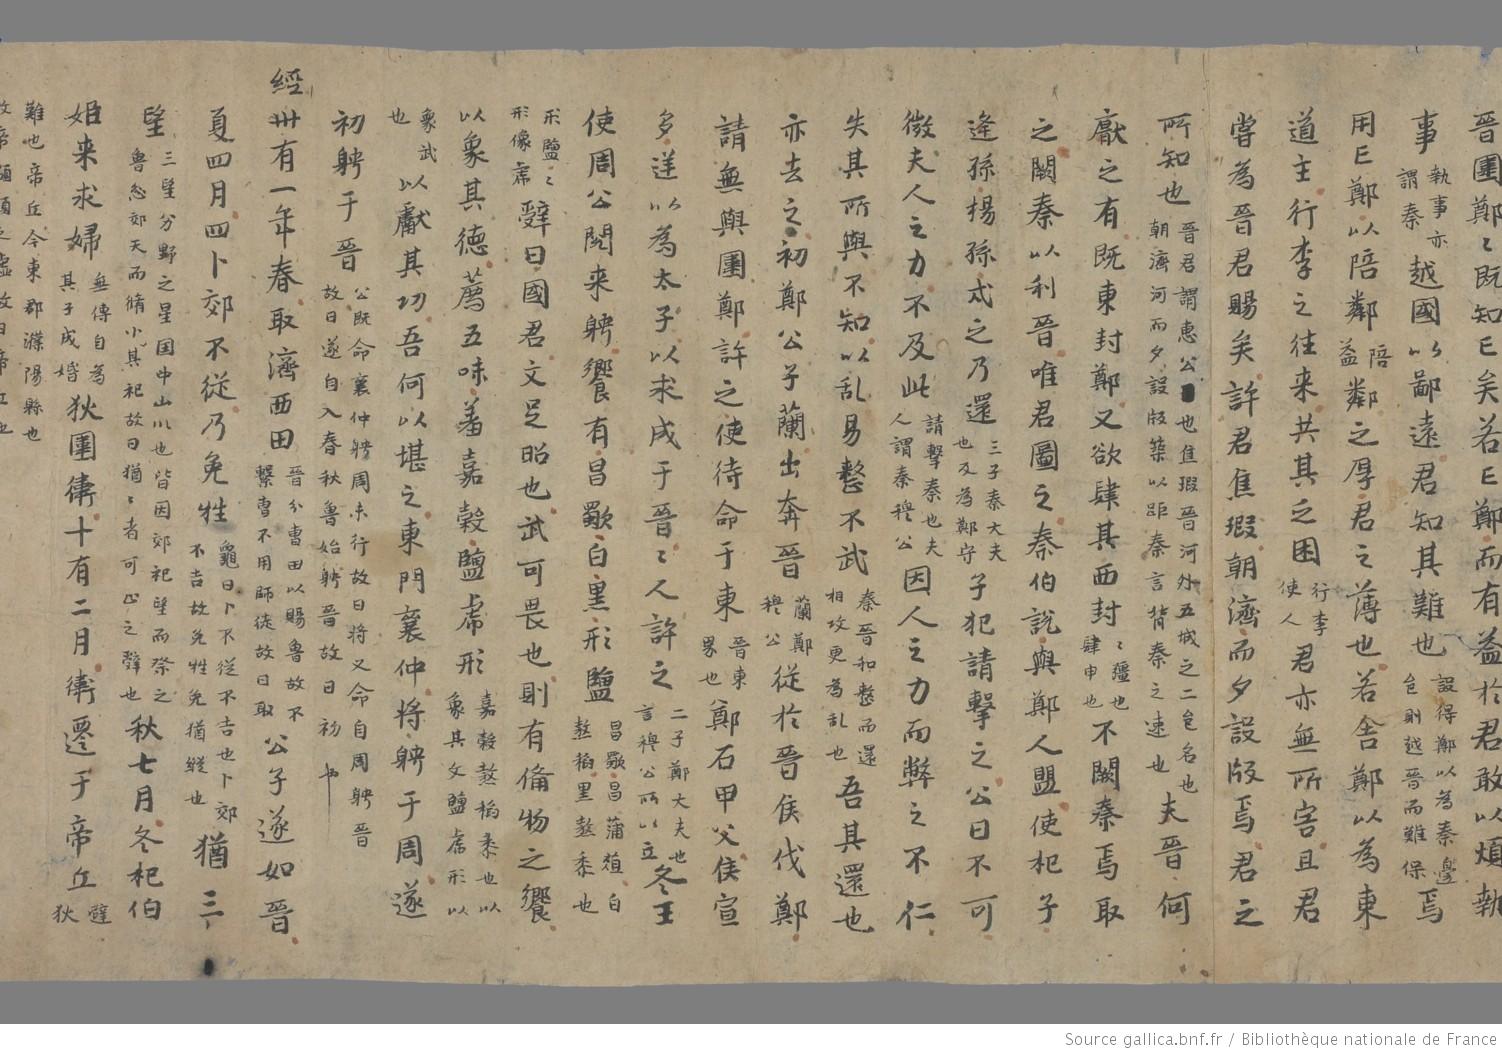 晉圍鄭〻既知亡矣若亡鄭而有益於君敢以煩執
事執事亦謂秦越國以鄙遠君知其難也設得鄭以為秦邊邑則越晉而難保焉
用亡鄭以陪鄰陪益鄰之厚君之薄也若舍鄭以為東
道主行李之往來共其乏困行李使人君亦無所害且君
嘗為晉君賜矣許君焦瑕朝濟而夕設版焉君之
所知也晉君謂惠公也焦瑕晉河外五城之二邑名也朝濟河而夕設版築以距秦言背秦之速也夫晉何
厭之有既東封鄭又欲肆其西封〻疆也肆申也不闕秦焉取
之闕秦以利晉唯君圖之秦伯說與鄭人盟使杞子
逢孫揚孫戍之乃還三子秦大夫也反為鄭守子犯請擊之公曰不可
微夫人之力不及此請擊秦也夫人謂秦穆公因人之力而弊之不仁
失其所與不知以乱易整不武秦晉和整而還相攻更為乱也吾其還也
亦去之初鄭公子蘭出奔晉蘭鄭穆公從於晉侯伐鄭
請無與圍鄭許之使待命于東晉東界也鄭石甲父侯宣
多逆以為太子以求成于晉〻人許之二子鄭大夫也言穆公所以立冬王
使周公閱来聘饗有昌歜白黑形鹽昌歜昌蒲葅白熬稻黑熬黍也
形鹽〻形像虎辭曰國君文足昭也武可畏也則有俻物之饗
以象其德薦五味羞嘉穀鹽虎形嘉穀熬稻黍也以象其文鹽虎形以
象武也以獻其功吾何以堪之東門襄仲将聘于周遂
初聘于晉公既命襄仲聘周未行故曰将又命自周聘晉故曰遂自入春秋魯始聘晉故曰初
經卅有一年春取濟西田晉分曹田以賜魯故不繫曹不用師徒故曰取公子遂如晉
夏四月四卜郊不從乃免牲龜曰卜不從不吉也卜郊不吉故免牲免猶縱也猶三
望三望分野之星国中山川也皆因郊祀望而祭之魯忩郊天而脩小其祀故曰猶〻者可止之辭也秋七月冬杞伯
姫来求婦無傳自為其子成婚狄圍衛十有二月衛遷于帝丘辟狄
難也帝丘今東郡濮陽縣也故帝顓頊之虚故曰帝丘也
Source gallica.bnf.fr / Bibliothèque nationale de France